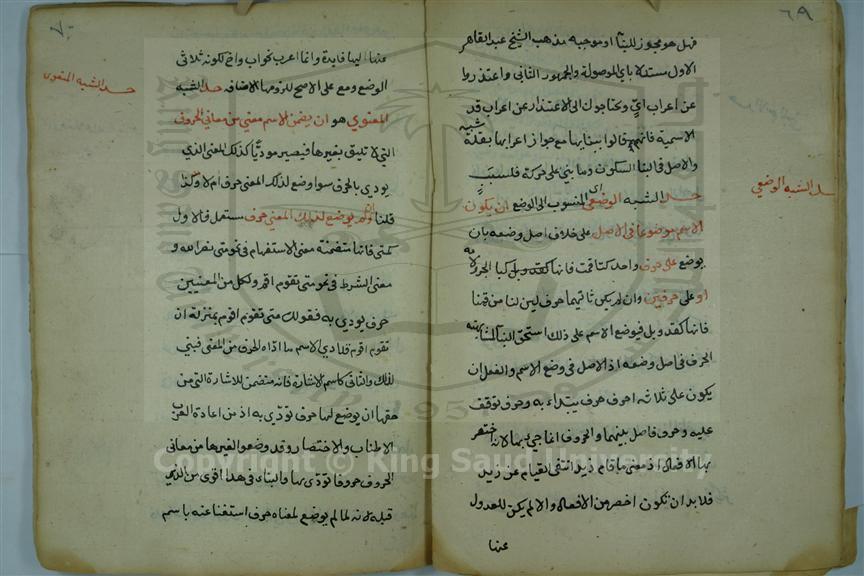 ٦٩
فهل هو مجوز للبناء او موجبه مذهب الشيخ عبد القاهر
الاول مستدلا باي الموصولة والجمهور الثانى واعتذروا
عن اعراب اي ويحتاجون الى الاعتذار عن اعراب قد
الاسمية فانهم قالوا ببنايها مع جواز اعرابها بقلة
والاصل فى البنا السكون وما بني على حركة فلسبب
حد الشبه الوضعي اى المنسوب الى الوضع ان يكون
الاسم موضوعا فى الاصل على خلاف اصل وضعه بان
يوضع على حرف واحد كتا قمت فانها كقد وبل كبا الجر ولامه
او على حرفين وان لم يكن ثانيهما حرف لين لنا من قمنا
فانها كقد وبل فيوضع الاسم على ذلك استحق البنا لمشابهته
الحرف فى اصل وضعه اذ الاصل فى وضع الاسم والفعل ان
يكون على ثلاثة احرف حرف يبتداء به وحرف توقف
عليه وحرف فاصل بينهما والحروف انما جيء بها لانه اختصر
بها الافعال اذ معنى ما قام زيد انتفى القيام عن زيد
فلا بد ان تكون اخصر من الافعال والا لم يكن للعدول
عنها
حد الشبه الوضعي
٧٠
عنها اليها فايدة وانما اعرب نحو اب واخ لكونه ثلاثى
الوضع ومع على الاصح للزومها الاضافه حد الشبه
المعنوي هو ان يضمن الاسم معنى من معاني الحروف
التي لا تليق بغيرها فيصير موديا كذلك المعنى الذي
يودي بالحرف سوا وضع لذلك المعنى حرف ام لا وكذا
قلنا وان لم يوضع لذلك المعنى حرف مستعمل فالاول
كمتى فانها متضمنة معنى الاستفهام فى نحو متى نصر الله و
معنى الشرط فى نحو متى تقوم اقم ولكل من المعنيين
حرف يودي به فقولك متى تقوم اقوم بمنزلة ان
تقوم اقوم فلا دي الاسم ما اداه الحرف من المعنى فبني
لذلك والثانى كاسم الاشارة فانه متضمن للاشارة التي من
حقها ان يوضع لها حرف تودي به اذ من اعادة العرب
الاطناب والاختصار وقد وضعوا لغيرها من معاني
الحروف حروفا تودى بها والبناء فى هذا اقوى من الذي
قبله لانه لما لم يوضع لمعناه حرف استغنا عنه باسم
حد الشبه المعنوى
Copyright © King Saud University